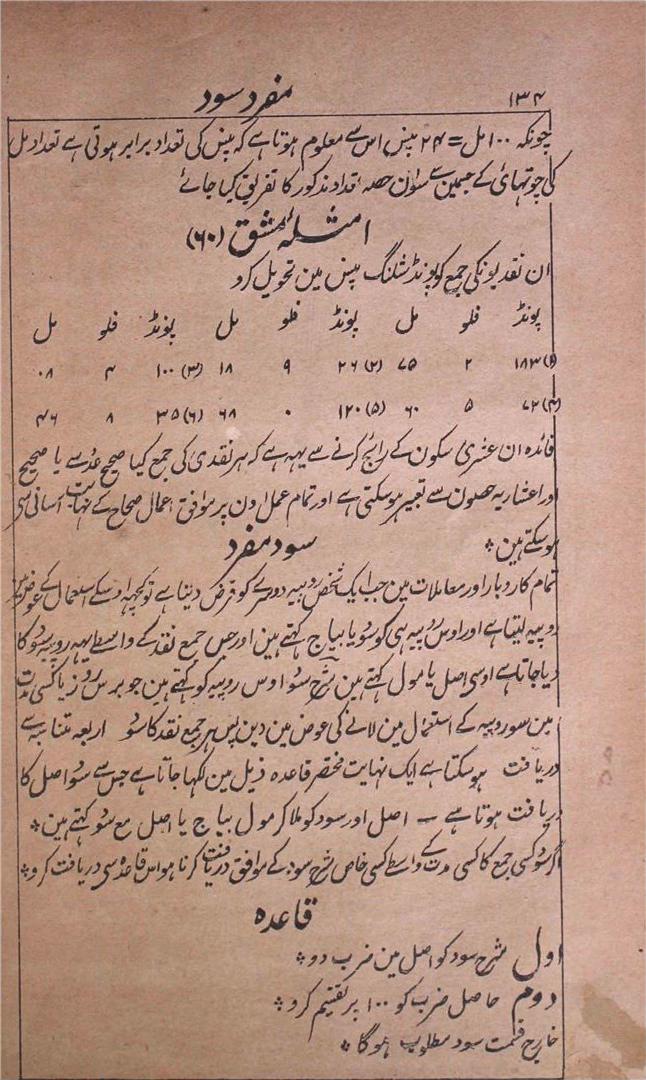 ۱۳۴ مفرد سود
چونکہ ۱۰۰ مل = ۲۴ پنس اس سے معلوم ہوتا ہے کہ پنس کی تعداد برابر ہوتی ہے تعداد مل
کی چوتہائی کے جسمین سے سوان حصہ تعداد مذکور کا تفریق کیا جائے
امثلہ مشق (۶۰)
ان نقد یونکی جمع کو پونڈ شلنگ پنس مین تحویل کرو
پونڈ فلو مل پونڈ فلو مل پونڈ فلو مل
(۱) ۱۸۳ ۲ ۷۵ (۲) ۲۶ ۹ ۱۸ (۳) ۱۰۰ ۴ ۰۸
(۴) ۷۲ ۵ ۶۰ (۵) ۱۲۰ ۰ ۶۸ (۶) ۳۵ ۸ ۴۶
فائدہ ان عشری سکون کے رایج کرنے سے یہہ ہے کہ ہر نقدی کی جمع کیا صحیح عدد سے یا صحیح
اور اعشاریہ حصون سے تعبیر ہو سکتی ہے اور تمام عمل اون پر موافق اعمال صحاح کے نہایت آسانی سی
ہو سکتے ہین ٭
سود مفرد
تمام کاروبار اور معاملات مین جب ایک شخص روپیہ دوسرے کو قرض دیتا ہے تو کچہہ اوسکے استعمال کے عوض مین
روپیہ لیتا ہے اور اوس روپیہ ہی کو سود یا بیاج کہتے ہین اور جس جمع نقد کے واسطے یہہ روپیہ سود کا
دیا جاتا ہے اوسی اصل یا مول کہتے ہین شرح سود اوس روپیہ کو کہتے ہین جو برس روز یا کسی مدت
مین سو روپیہ کے استعمال مین لانے کی عوض مین دین پس ہر جمع نقد کا سود اربعہ متناسبہ سے
دریافت ہو سکتا ہے ایک نہایت مختصر قاعدہ ذیل مین لکہا جاتا ہے جس سے سود اصل کا
دریافت ہوتا ہے ۔ اصل اور سود کو ملا کر مول بیاج یا اصل مع سود کہتے ہین ٭
اگر سود کسی جمع کا کسی مدت کے واسطے کسی خاص شرح سود کے موافق دریافت کرنا ہو اس قاعدہ سی دریافت کرو ٭
قاعدہ
اول شرح سود کو اصل مین ضرب دو ٭
دوم حاصل ضرب کو ۱۰۰ پر تقسیم کرو ٭
خارج قسمت سود مطلوب ہوگا ٭